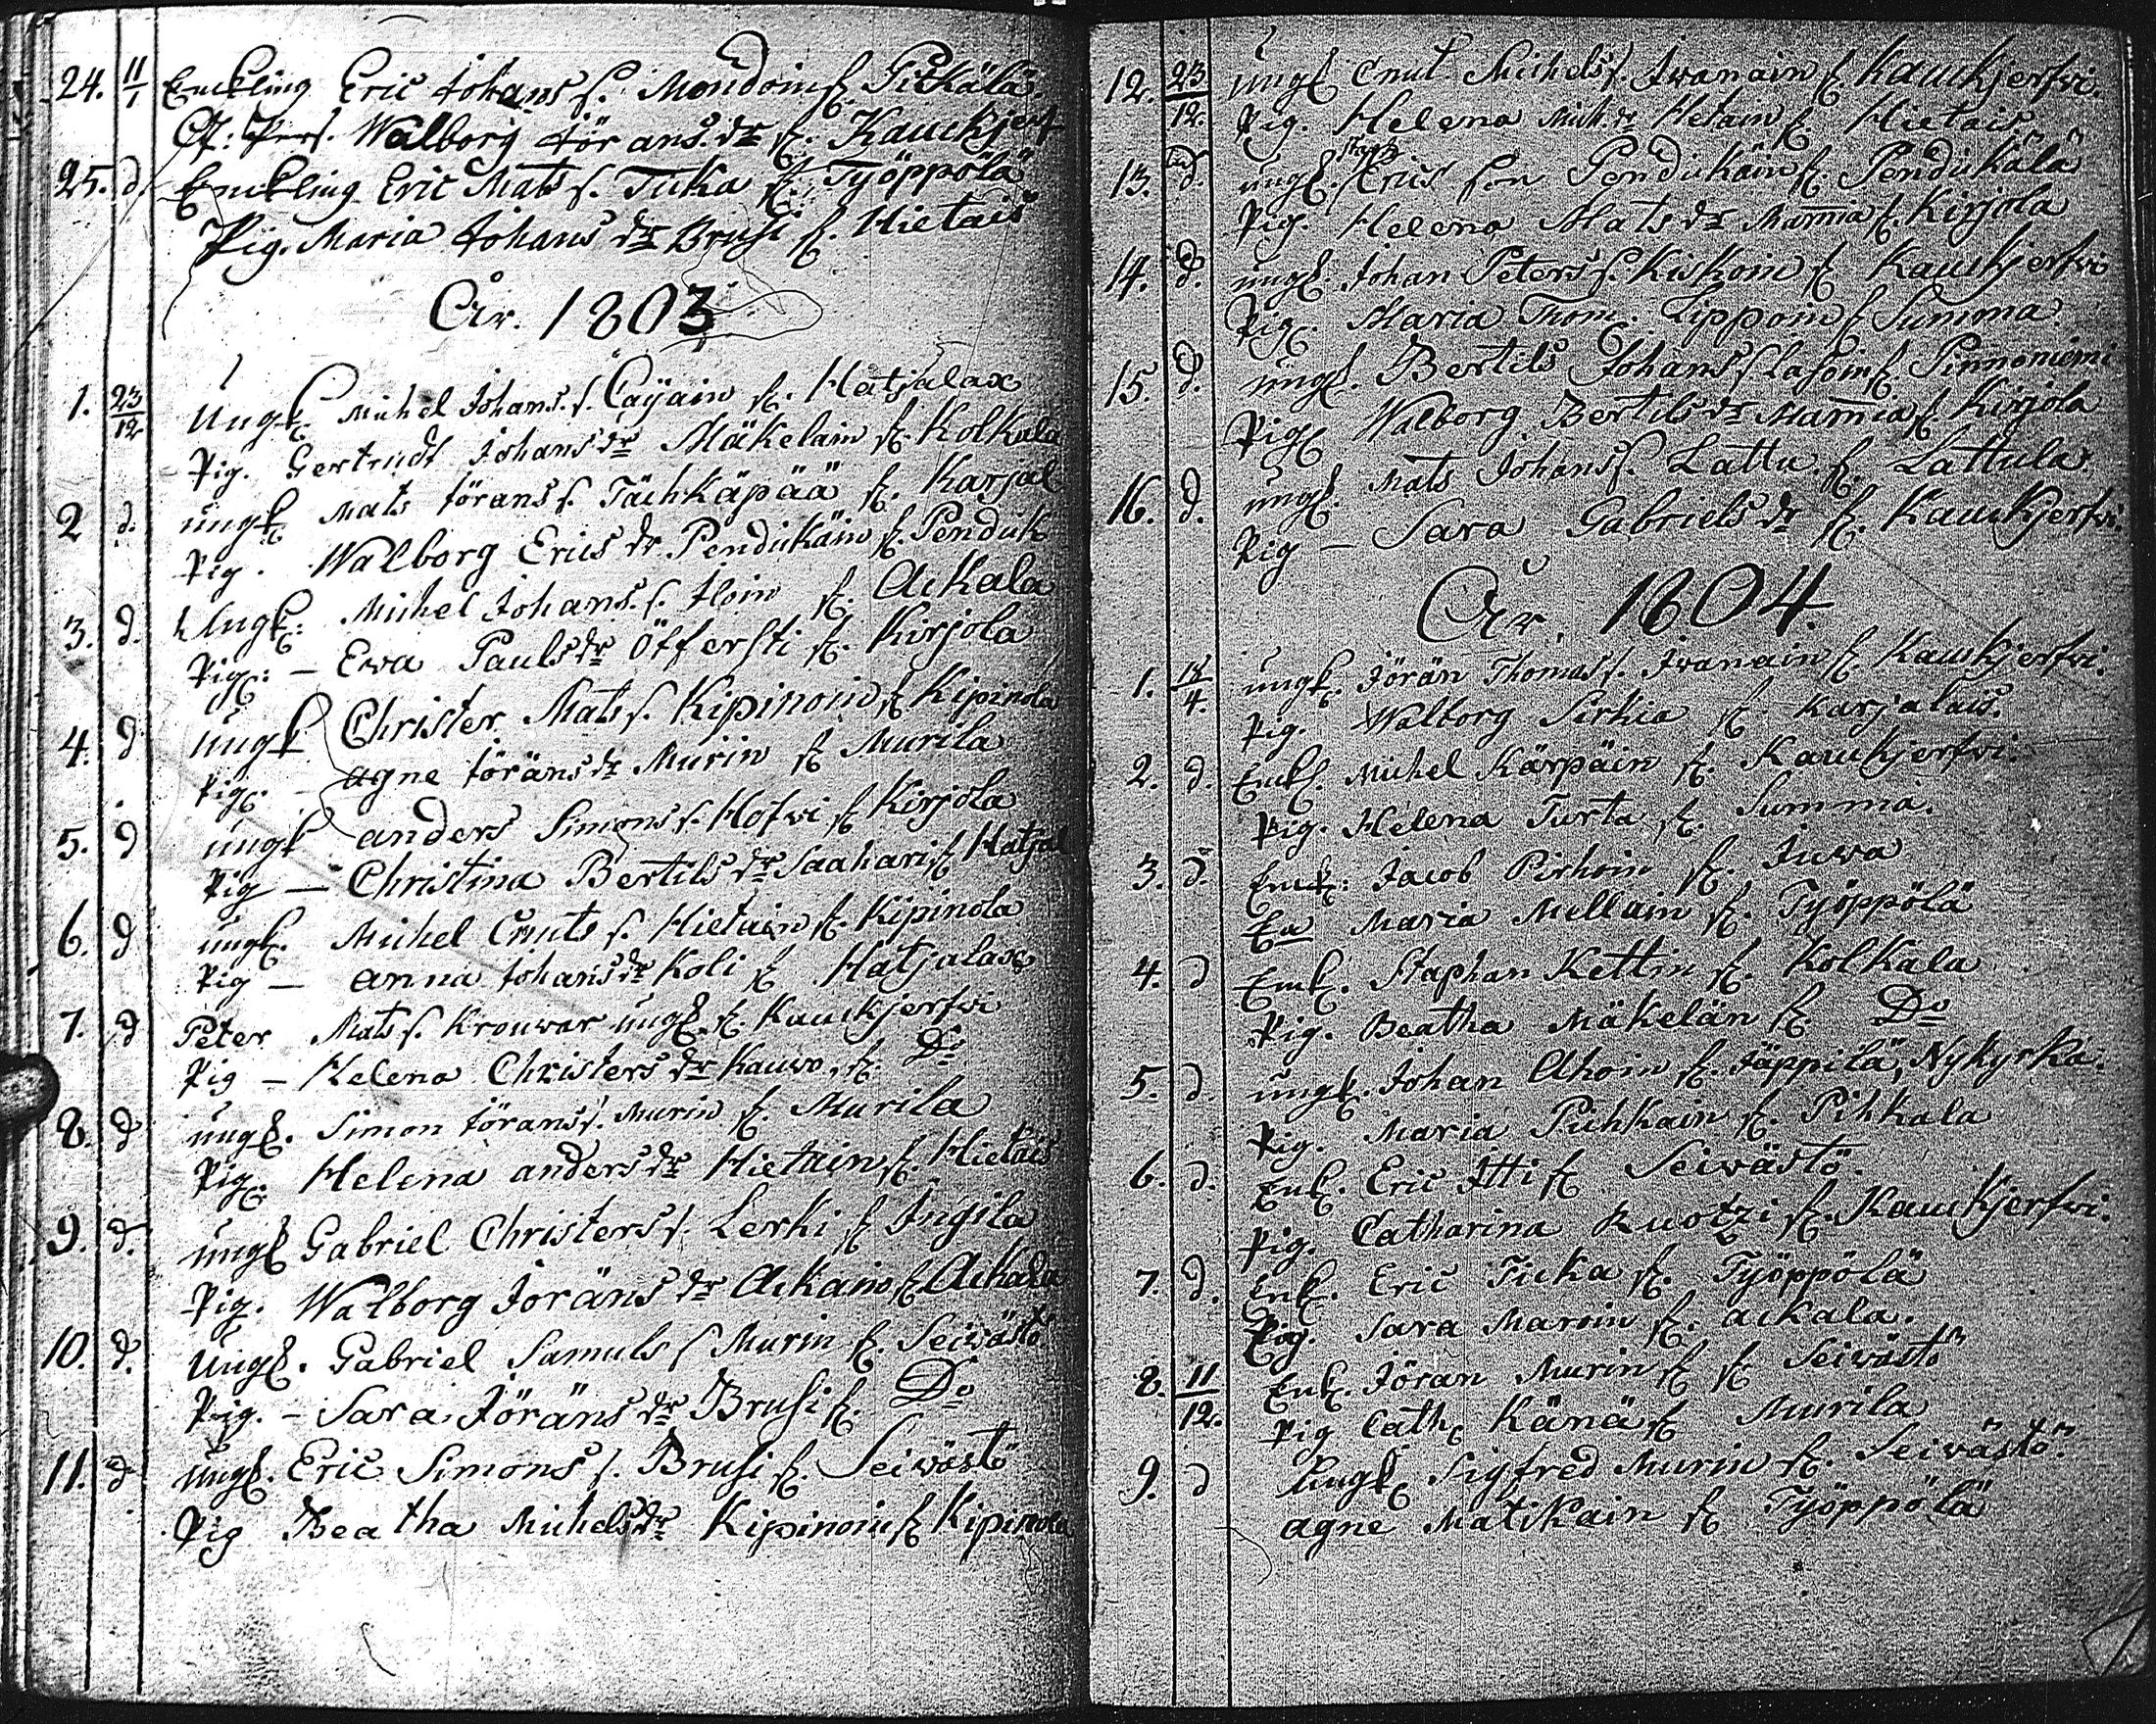 24. 11/1 Enckling Eric Johans s. Mondoin f. Pitkälä.
Walborg Jörans. dr f. Kauckjerf
25. d Enckling Eric Mats s. Tuka f. Työppölä
Pig. Maria Johans dr Brusi f. Hietais
År. 1803
1. 23/12 Ungk. Michel Johans. s. Cayain f. Hatjalax
Pig. Gertrudt Johans dr Mäkelain f. Kolkala
2 d. ungk. Mats Jörans s. Tächkäpää f. Karjal
Pig. Walborg Erics dr Pendikäin f. Penduk
3. d. Ungk. Michel Johans. s. Iloin f. Ackala
Pig. – Ewa Pauls dr Öffersti f. Kirjola
4. d ungk Christer Mats s. Kipinoin f. Kipinola
Pig. – agne Jöräns dr Murin f. Murila
5. d ungk anders Simons s. Hofwi f. Kirjola
Pig – Christina Bertils dr Saahari f. Hatjal
6. d ungk. Michel Cnuts s. Hietain f. Kipinola
Pig – anna Johans dr Koli f. Hatjalax
7. d Peter Mats s. Kronwar ungk. f. Kauckjerfwi
Pig – Helena Christers dr Kauwo, f. Do
8. d ungk. Simon Jörans s. Murin f. Murila
Pig. Helena anders dr Hietain f. Hietais
9. d. ungk Gabriel Christers s. Lerki f. Ingila
Pig. Walborg Joräns dr Ackain f. Ackala
10. d. Ungk. Gabriel Samuls s Murin f. Seiwästö
Pig. – Sara Jöräns dr Brusi f. Do
11. d ungk. Eric Simons s. Brusi f. Seiwästö
Pig Beatha Michels dr Kipinoin f. Kipinola
12. 23/12. ungk Cnut Michels s. Iwanain f. Kauckjerfwi.
Pig. Helena Mich. dr Hetain f. Hietais
13. d. ungk. Erics son Pendikäin f. Pendikälä
Pig. Helena Mats dr Mamia f. Kirjola
14. d. ungk Johan Peters s. Kiskoin f. Kauckjerfwi
Pig. Maria Thom. Lippoin f. Summa.
15 d. ungk. Bertils Johans s Lasoin f. Pinnoniemi
Pig Walborg Bertils dr Mamia f. Kirjola
16. d. ungk. Mats Johans s. Lattu f. Lattula
Pig – Sara Gabriels dr f. Kauckjerfwi.
År. 1804.
1. 18/4. ungk. Jörän Thomas s. Iwanain f. Kauckjerfwi.
Pig. Walborg Sirkia f. Karjalais.
2. d. Enck. Michel Kärpäin f. Kauckjerfwi.
Pig. Helena Turta f. Summa.
3. d. Enck: Jacob Pirhoin f. Juwa
Ea Maria Mellain f. Työppölä
4. d Enck. Staphan Kettin f. Kolkala
Pig. Beatha Mäkelän f. Do
5. d. ungk. Johan Ahoin f. Jäppilä, Nykyrka.
Pig. Maria Pihkain f. Pihkala
6. d. Enk. Eric Itti f. Seiwästö.
Pig. Catharina Ruotzi f. Kauckjerfwi.
7. d. Enk. Eric Ticka f. Työppölä
Pig. Sara Maroin f. ackala.
8. 11/12. Enk. Jöran Murin f. f. Seiwästö
Pig Cath. Känä f. Murila
9. d Ungk. Sigfred Murin f. Seiwästö.
agne Matikain f. Työppölä